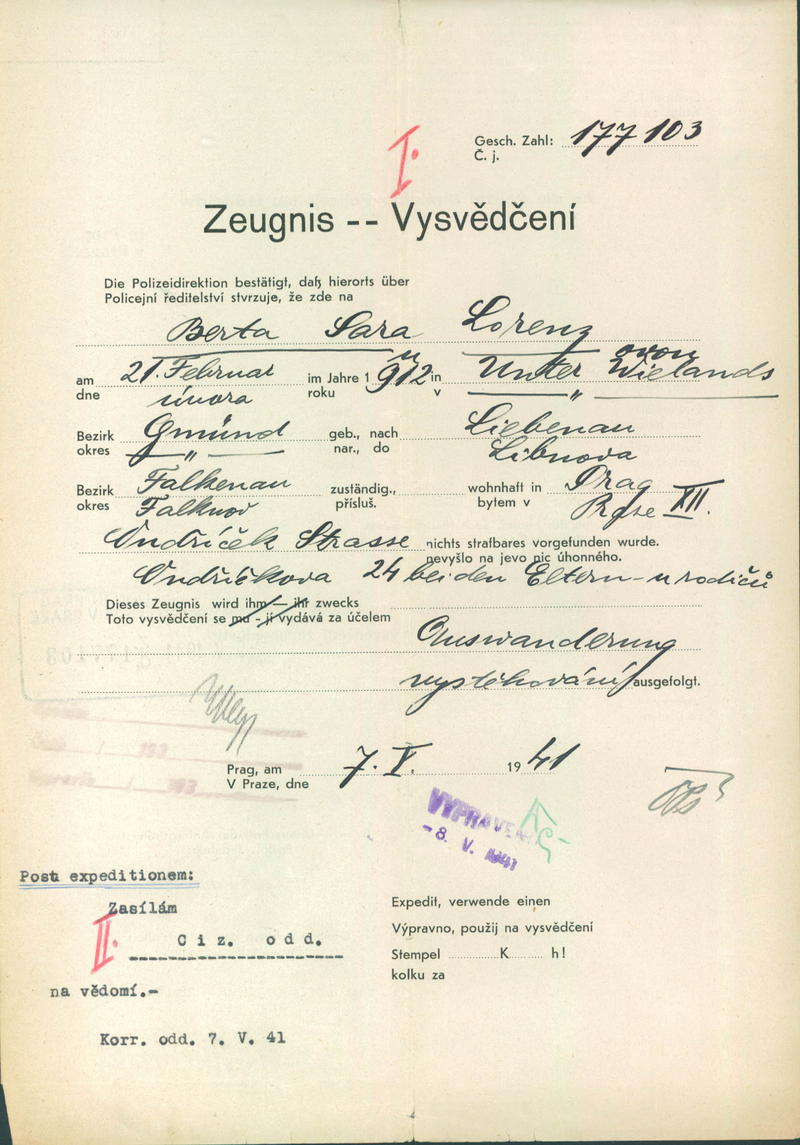 I.
Gesch. Zahl: 177103
Č. j.
Zeugnis -- Vysvědčení
Die Polizeidirektion bestätigt, daß hierorts über
Policejní ředitelství stvrzuje, že zde na
Berta Sara Lorenz
am 21. Februar im Jahre 1912 in Unter Wielands
dne února roku v "
Bezirk Gmünd geb., nach Liebenau
okres " nar., do Libnova
Bezirk Falkenau zuständig., wohnhaft in Prag
okres Falknov přísluš. bytem v XII.
Ondříček Strasse nichts strafbares vorgefunden wurde.
nevyšlo na jevo nic úhonného.
Ondříčkova 24 bei den Eltern - u rodičů
Dieses Zeugnis wird ihm — ihr zwecks
Toto vysvědčení se mu - jí vydává za účelem
Auswanderung
vystěhování ausgefolgt.
Prag, am 7. V. 1941
V Praze, dne
VYPRAVENO
-8. V. 1941
Post expeditionem:
Zasílám
II.
Ciz. odd.
na vědomí.-
Korr. odd. 7. V. 41
Expedit, verwende einen
Výpravno, použij na vysvědčení
Stempel K h!
kolku za